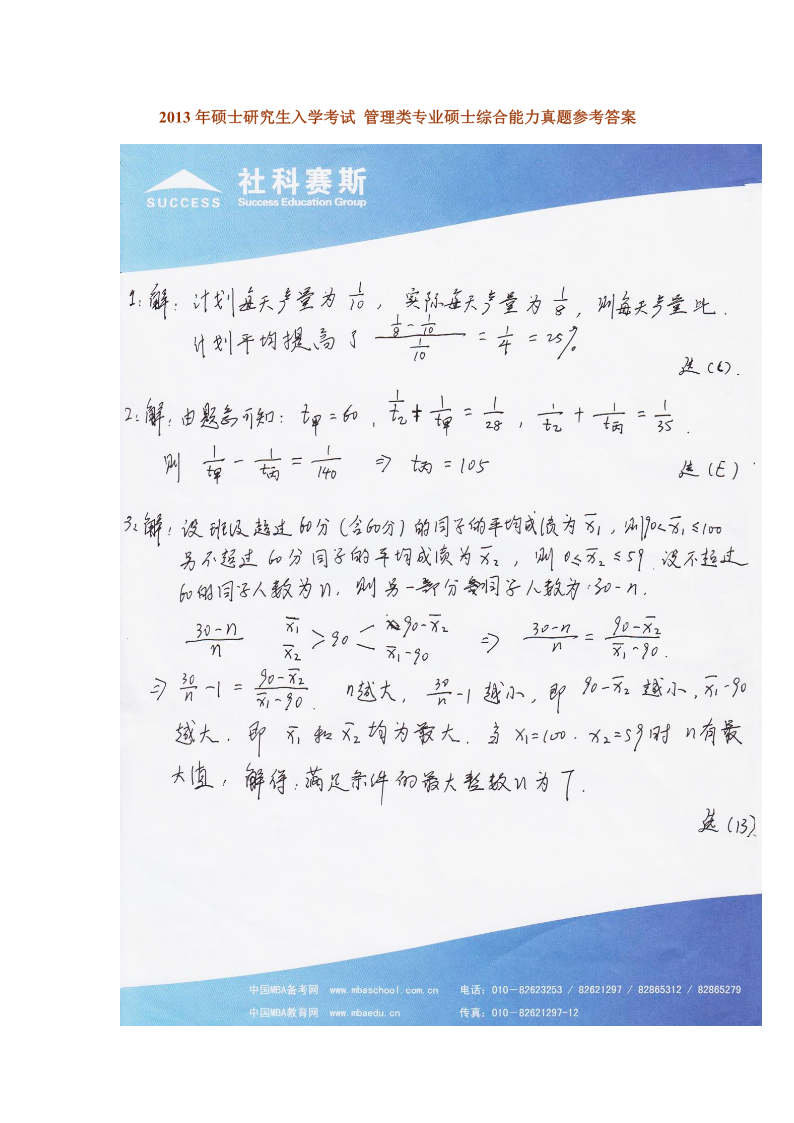 2013 年硕士研究生入学考试 管理类专业硕士综合能力真题参考答案
SUCCESS
社科赛斯
Success Education Group
1: 解: 计划每天产量为 1/10 , 实际每天产量为 1/8 , 则每天产量比
计划平均提高了 (1/8 - 1/10) / (1/10) = 1/4 = 25%
选 (C).
2: 解: 由题意可知: t甲 = 60 , 1/t乙 + 1/t甲 = 1/28 , 1/t乙 + 1/t丙 = 1/35 .
则 1/t甲 - 1/t丙 = 1/140 ⇒ t丙 = 105
选 (E)
3: 解: 设班级超过60分(含60分)的同学的平均成绩为 x̄1 , 则90< x̄1 ≤100
另不超过 60分同学的平均成绩为 x̄2 , 则 0≤ x̄2 ≤59 . 设不超过
60的同学人数为 n, 则另一部分同学人数为: 30-n.
(30-n)/n x̄1 x̄2 > 90 < 90-x̄2 x̄1-90 ⇒ (30-n)/n = (90-x̄2)/(x̄1-90) .
⇒ 30/n -1 = (90-x̄2)/(x̄1-90) . n越大, 30/n -1 越小, 即 90-x̄2 越小, x̄1-90
越大. 即 x̄1 和 x̄2 均为最大. 当 x1=100 . x2=59时 n有最
大值, 解得: 满足条件的最大整数n为 7.
选 (B)
中国MBA备考网 www.mbaschool.com.cn 电话: 010-82623253 / 82621297 / 82865312 / 82865279
中国MBA教育网 www.mbaedu.cn 传真: 010-82621297-12